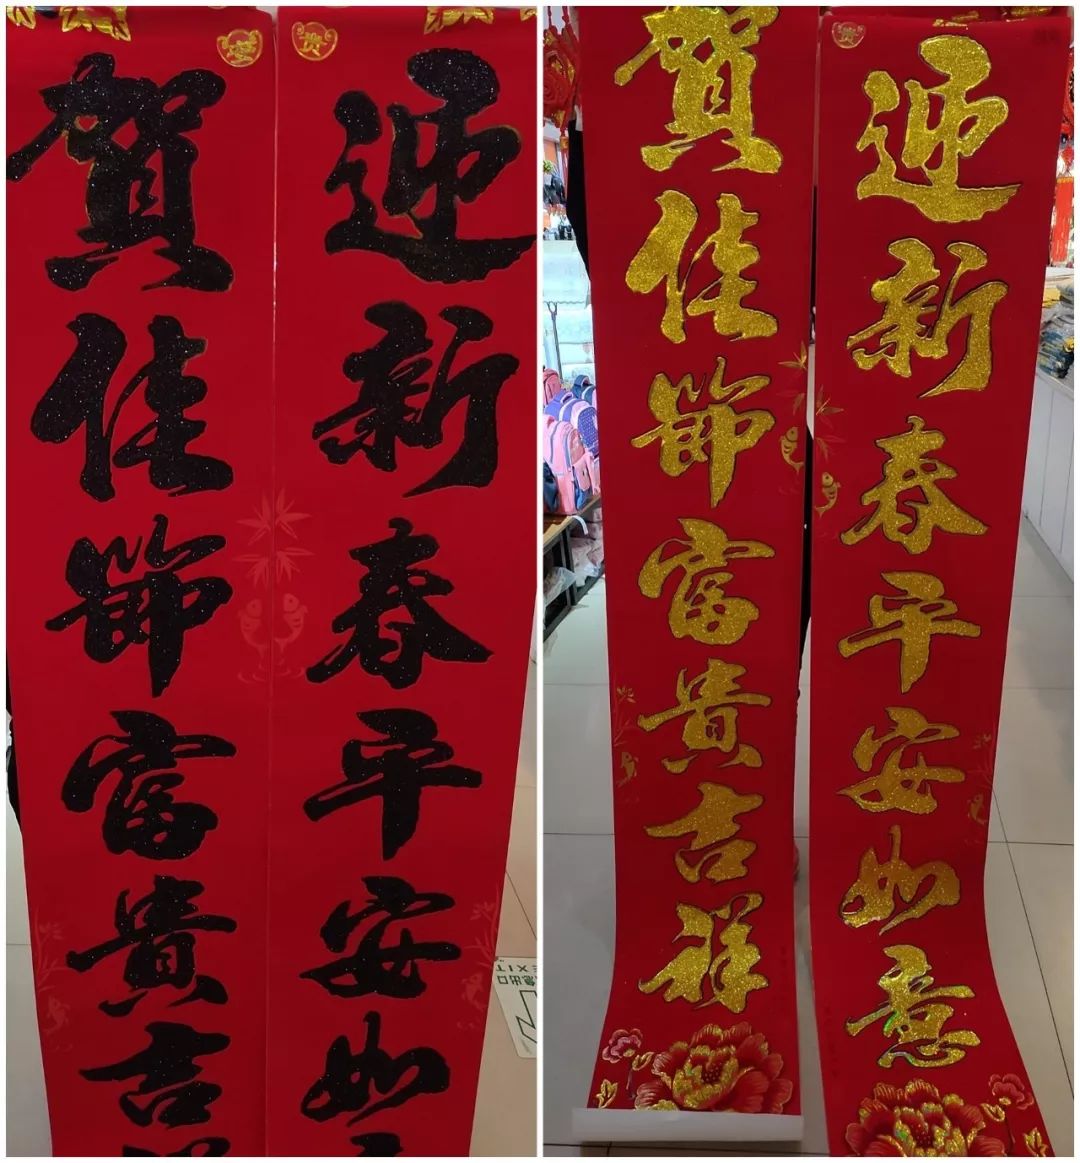 贵
迎新春平安如
賀佳節富貴吉
EXIT
急出口
迎新春平安如意
賀佳節富貴吉祥